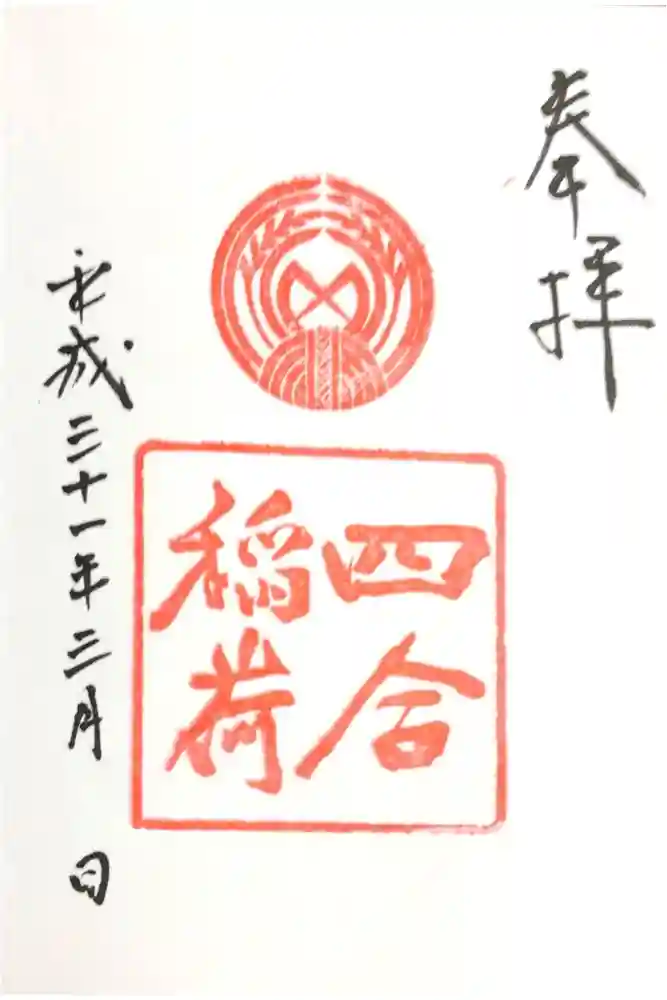 奉拝
四合
稲荷
平成三十一年三月　日